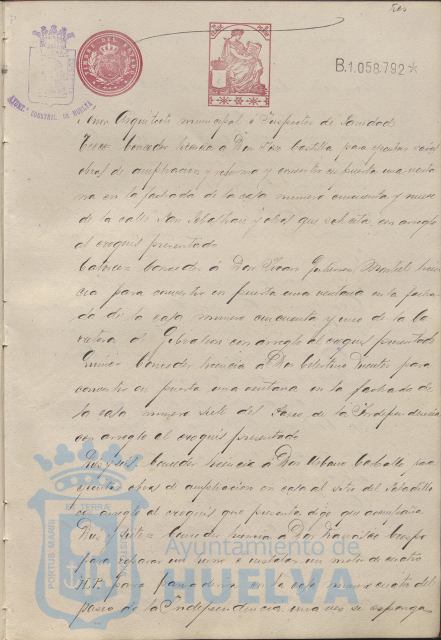 tres
AYUNT. CONSTNAL. DE HUELVA
TIMBRE DEL ESTADO
B.1.058.792*
Arquitecto municipal é Inspector de Sanidad
Trece: Conceder licencia a Don José Castilla para ejecutar varias
obras de ampliacion y reforma y convertir en puerta una venta
na en la fachada de la casa numero cincuenta y nueve
de la calle San Sebastian y obras que solicita, con arreglo
al croquis presentado
Catorce: Conceder á Don Juan Gutierrez licen
cia para convertir en puerta una ventana en la facha
da de la casa numero cincuenta y uno de la Ca
rretera de Gibraleon con arreglo al croquis presentado
Quince: Conceder licencia a Don Celestino para
convertir en puerta una ventana en la fachada de
la casa numero siete del Paseo de la Independencia
con arreglo al croquis presentado
Diez y seis: Conceder licencia a Don Urbano Carballo para
ejecutar obras de ampliacion en casa al sitio del
con arreglo al croquis que presenta
Diez y siete: Conceder licencia a Don Crespo
para reparar un horno é instalar un motor de cuatro
H.P. para panaderia en la casa numero cuatro del
paseo de la Independencia, una vez se
PORTUS MARIS ET TERRAE CUSTODIA
Ayuntamiento de
HUELVA